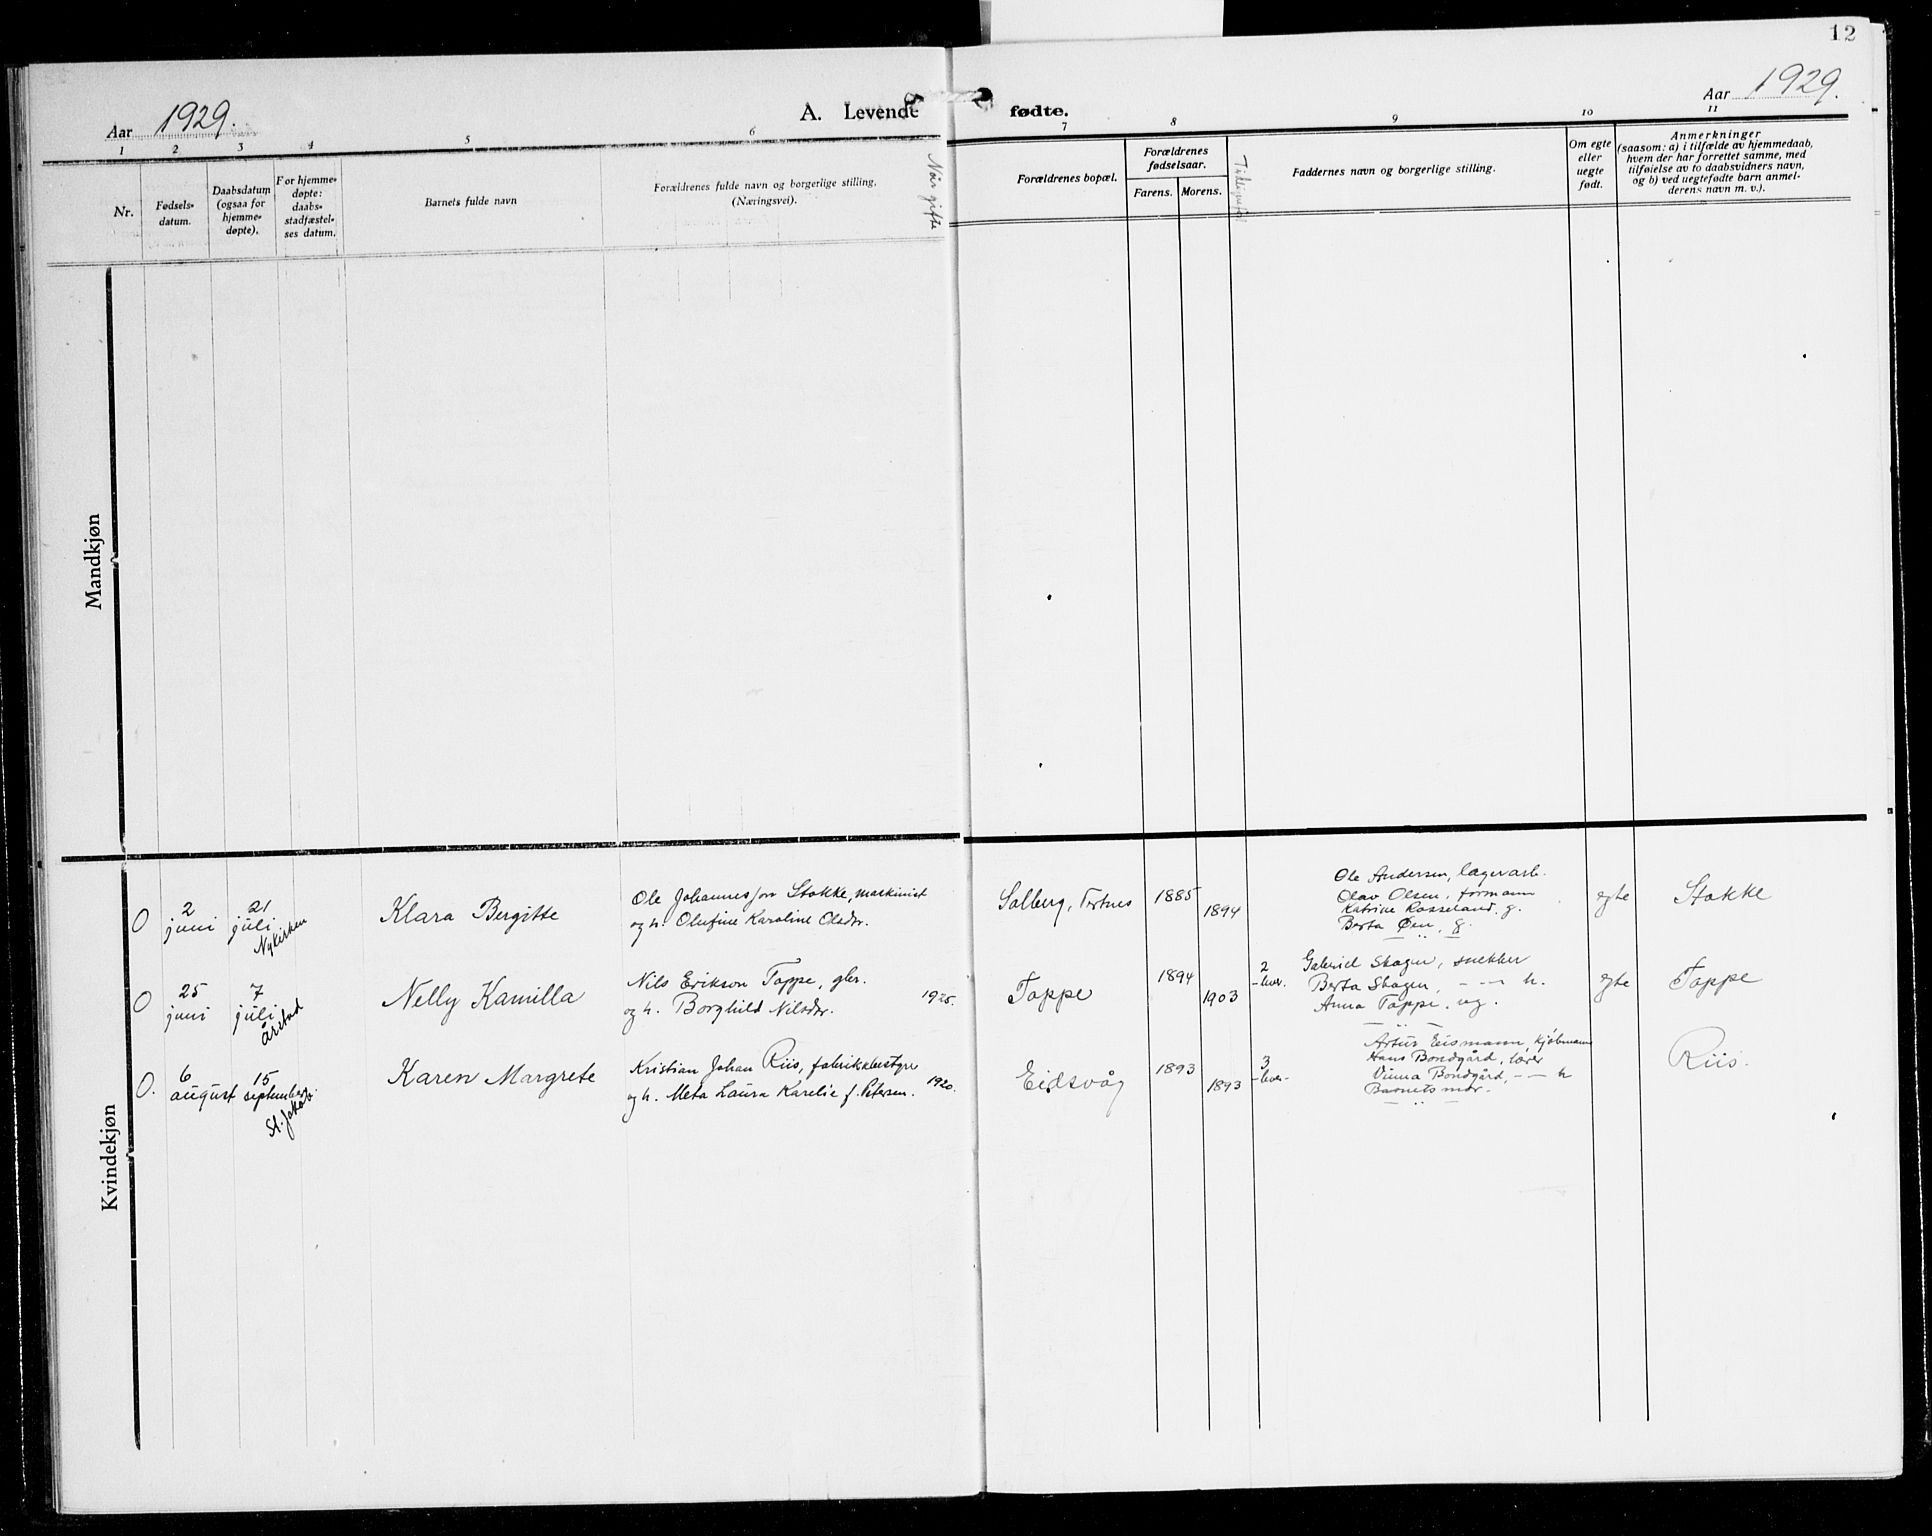 12
Aar 1929.
A. Levende fødte.
Aar 1929.
1 2 3 4 5 6 7 8 9 10 11
Nr.
Fødsels-
datum.
Daabsdatum
(ogsaa for
hjemme-
døpte).
For hjemme-
døpte:
daabs-
stadfæstel-
ses datum.
Barnets fulde navn
Forældrenes fulde navn og borgerlige stilling.
(Næringsvei).
Når gifte
Forældrenes bopæl.
Forældrenes
fødselsaar.
Farens. Morens.
Faddernes navn og borgerlige stilling.
Om egte
eller
uegte
født.
Anmerkninger
(saasom: a) i tilfælde av hjemmedaab,
hvem der har forrettet samme, med
tilføielse av to daabsvidners navn,
og b) ved uegtefødte barn anmel-
derens navn m. v.).
Mandkjøn
Kvindekjøn
0 2 juni 21 juli Nykirken
Klara Bergitte
Ole Johannesson Stokke, maskinist
og h. Olufine Karoline Olsdr.
Solberg, Tertnes 1885 1894
Ole Andersen, lagerarb.
Olav Olsen, formann
Katrine Rosseland, g.
Berta Øen, g.
egte Stokke
0 25 juni 7 juli Årstad
Nelly Kamilla
Nils Erikson Toppe, gbr.
og h. Borghild Nilsdr. 1925.
Toppe 1894 1903
2 lever.
Gabriel Skagen, snekker
Berta Skagen, - - - h.
Anna Toppe, ug.
egte Toppe
0. 6 august 15 september St. Jakob.
Karen Margrete
Kristian Johan Riis, fabrikkbestyrer
og h. Meta Laura Karelie f. Petersen. 1920.
Eidsvåg 1893 1893
3 lever
Artur Eismann, kjøbmann
Hans Bondgård, lærer
Vinna Bondgård, - - h
Barnets mor.
Riis.